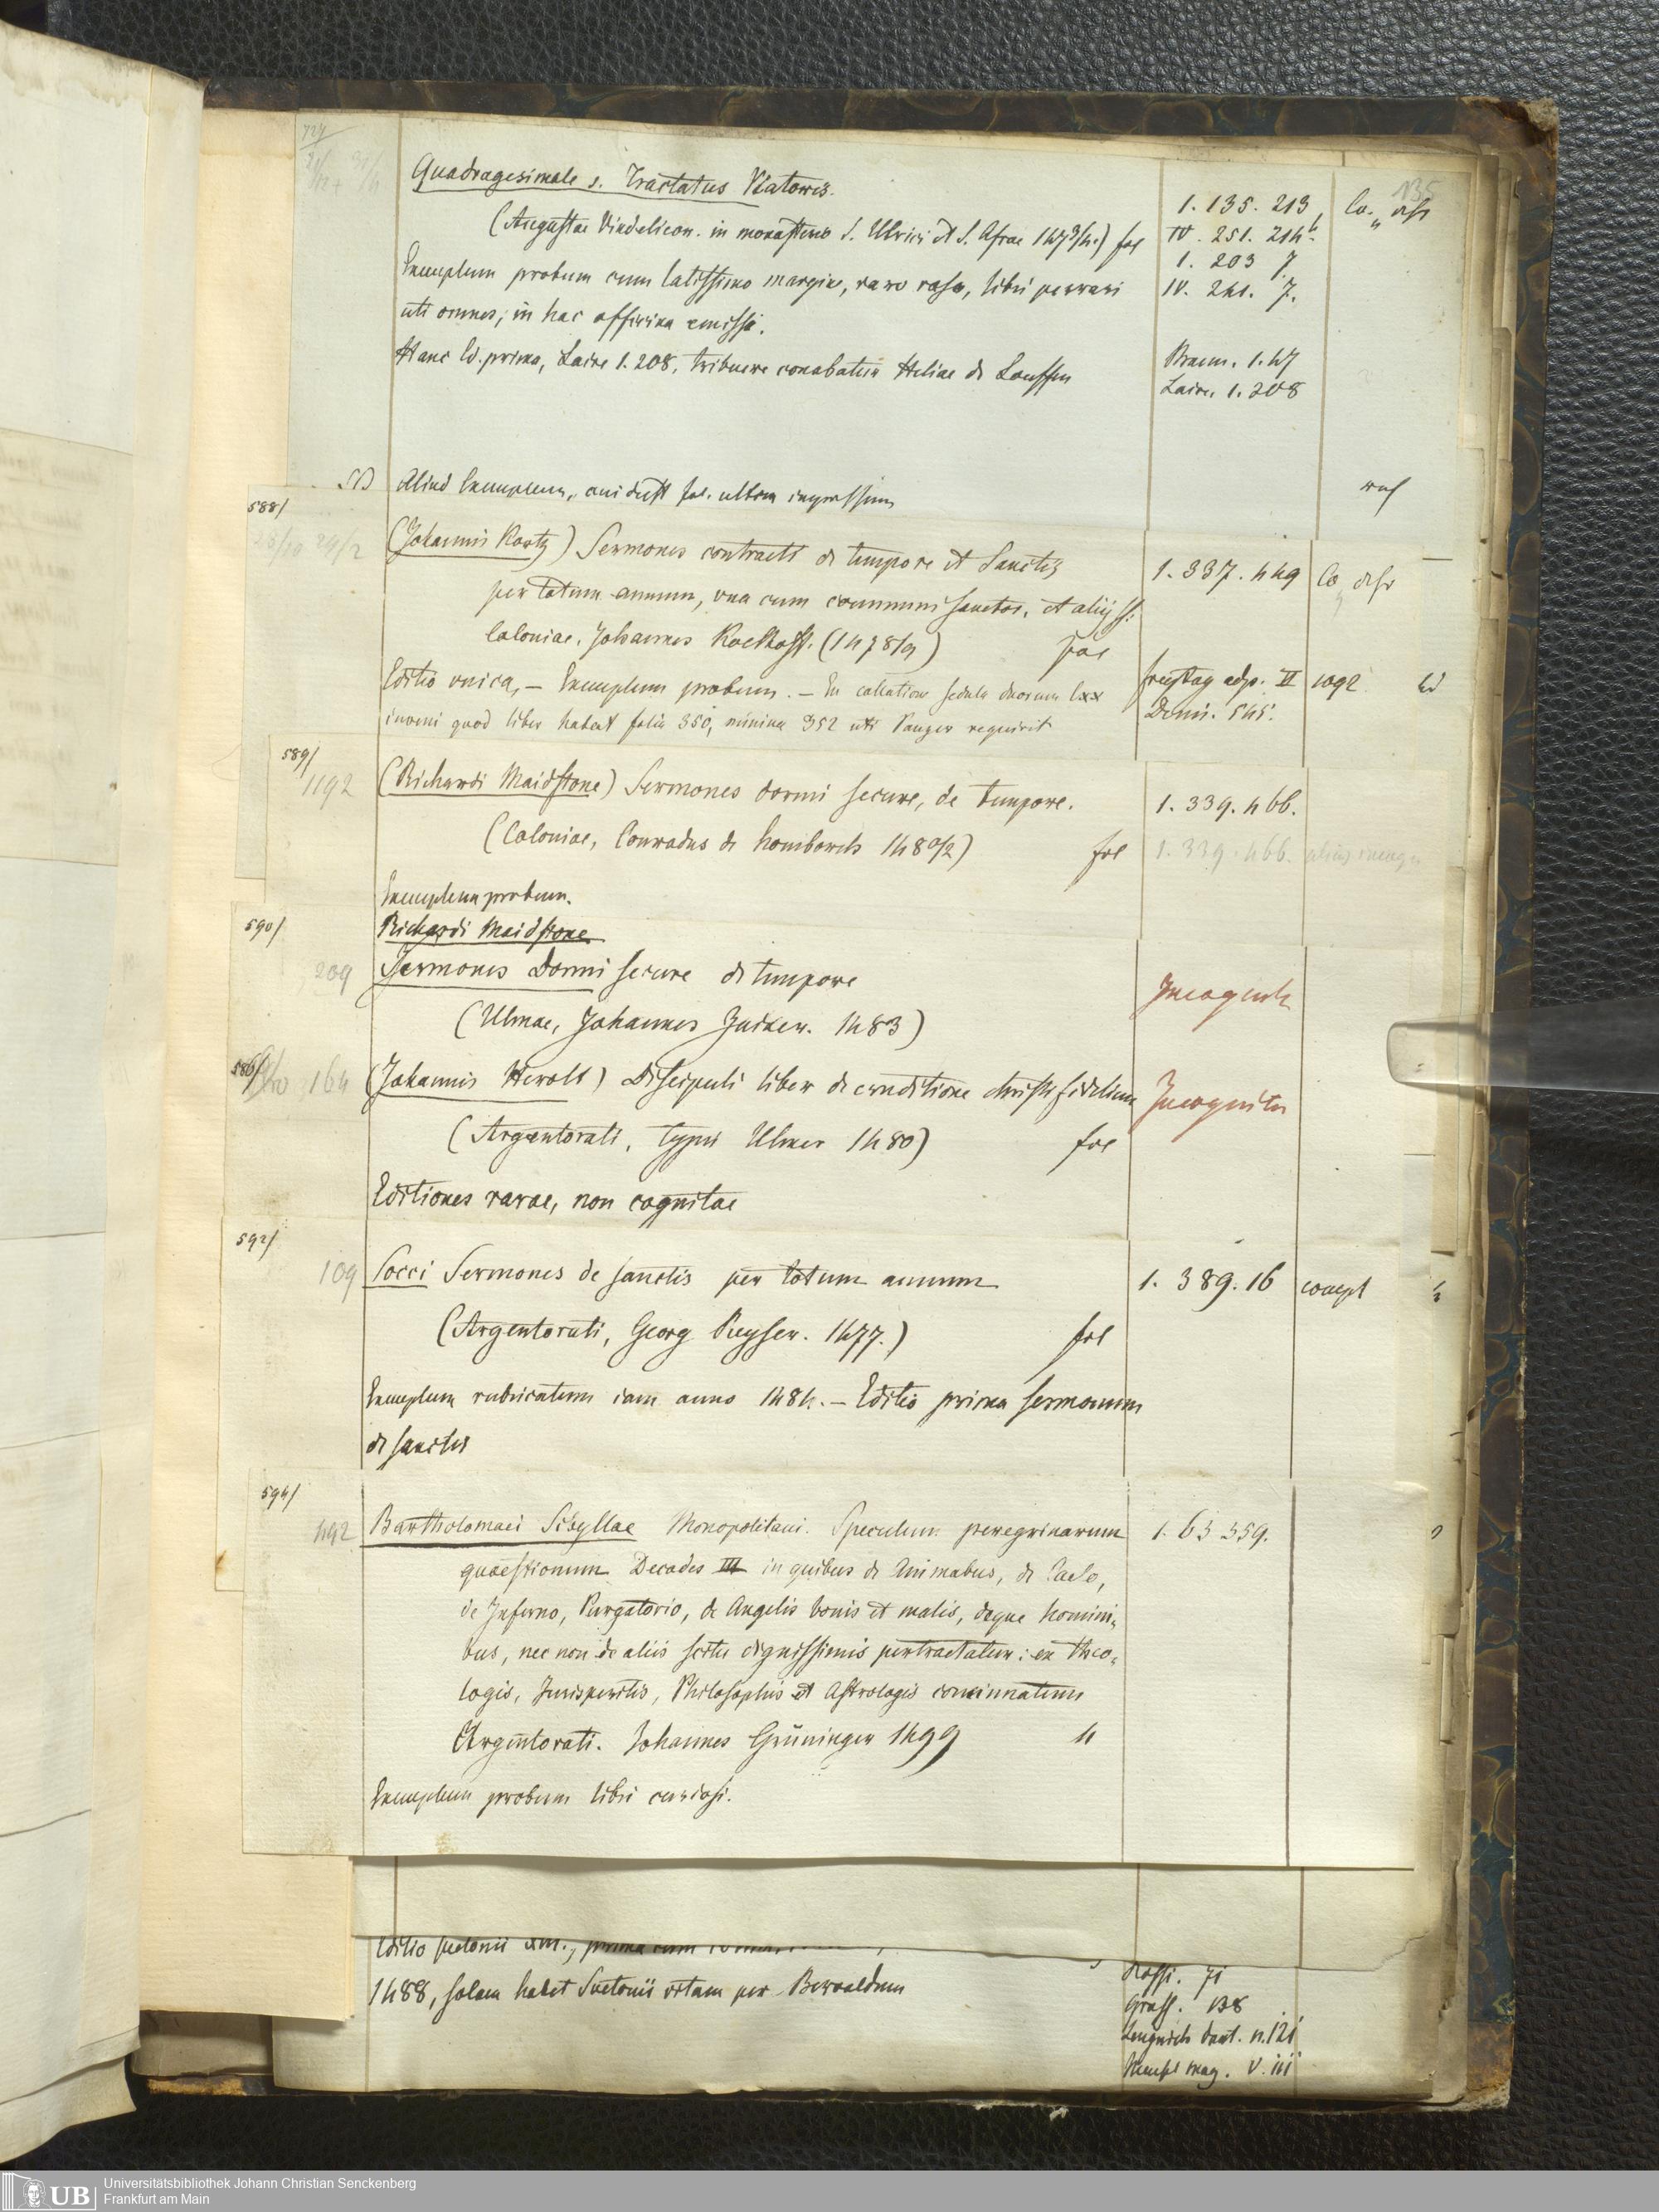 135
Quadragesimale s. Tractatus Viatoris.
(Augustae Vindelicor. in monasterio S. Ulrici et S. Afrae 1473/4.) fol
1. 135. 213,
IV. 251. 214.
1. 203 7
IV. 241. 7.
Exemplum probum cum latissimo margine, raro raso, libri perrari
uti omnes, in hac officina emissi.
Hanc Ed. primo, Laire 1.208. tribuere conabatur Heliae de Louffen
Braun. 1.47
Laire. 1.208
Aliud Exemplum, cui deest fol. ultim impressum
588/
(Johannis Kortz) Sermones contracti de tempore et Sanctis
per totum annum, una cum communi sanctor. et alijs
Coloniae. Johannes Koelhoff. (1478/9) fol
1. 337. 449
Editio unica, – Exemplum probum. – Ex collatione sedula duorum Exx
inveni quod liber habeat folia 350, minime 352 uti Panzer requirit
freytag adp. II
Denis. 545.
589/
1192
(Richardi Maidstone) Sermones dormi secure, de tempore.
(Coloniae, Conradus de homborch 1480/2) fol
1. 339. 466.
1. 339. 466.
Exemplum probum.
590/
209
Richardi Maidstone
Sermones Dormi secure de tempore
(Ulmae, Johannes Zainer. 1483)
Incognita
586/
164
(Johannis Herolt) Discipuli liber de eruditione christi fidelium
(Argentorati, typis Ulmer 1480) fol
Incognita
Editiones rarae, non cognitae
592/
109
Socci Sermones de sanctis per totum annum
(Argentorati, Georg Reyser. 1477.) fol
1. 389. 16
compl
Exemplum rubricatum iam anno 1484. – Editio prima sermonum
de sanctis
594/
492
Bartholomaei Sibyllae Monopolitani. Speculum peregrinarum
quaestionum Decades III in quibus de Animabus, de Caelo,
de Inferno, Purgatorio, de Angelis bonis et malis, deque homini-
bus, nec non de aliis scitu dignissimis pertractatur: ex theo-
logis, Jurisperitis, Philosophis et Astrologis concinnatum
Argentorati. Johannes Grüninger 1499 4
1. 63 359.
Exemplum probum libri curiosi.
1488, solam habet Suetonii vitam per Beroaldum
Rossi. 71
Universitätsbibliothek Johann Christian Senckenberg
Frankfurt am Main
UB